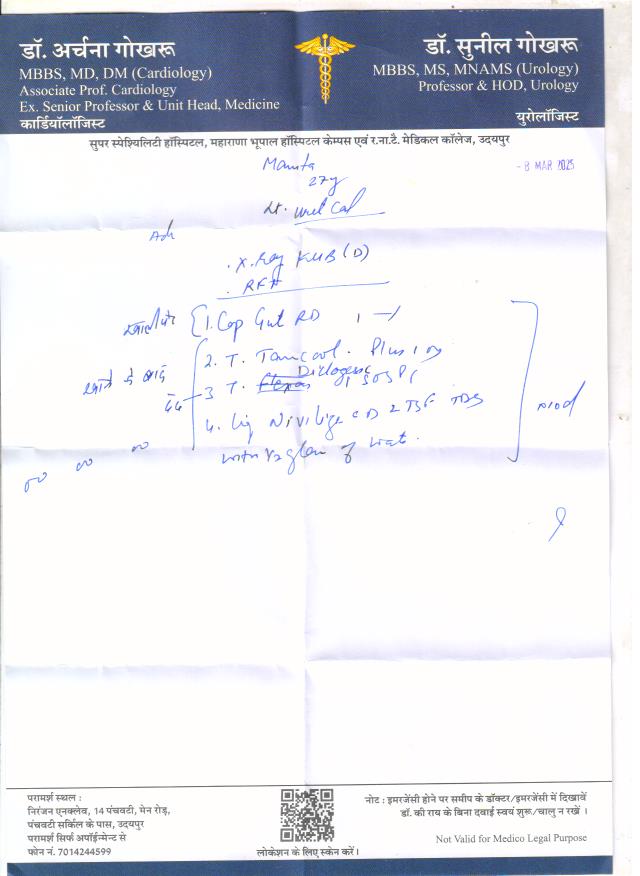 डॉ. अर्चना गोखरू
MBBS, MD, DM (Cardiology)
Associate Prof. Cardiology
Ex. Senior Professor & Unit Head, Medicine
कार्डियॉलॉजिस्ट
डॉ. सुनील गोखरू
MBBS, MS, MNAMS (Urology)
Professor & HOD, Urology
युरोलॉजिस्ट
सुपर स्पेश्यिलिटी हॉस्पिटल, महाराणा भूपाल हॉस्पिटल केम्पस एवं र.ना.टै. मेडिकल कॉलेज, उदयपुर
- 8 MAR 2025
Mamta
27y
Adv
. X. Ray KUB (D)
. RFT
खाली पेट
1. Cap Gut RD 1 -/
खाने के बाद
2. T. Tamcool. Plus 1 OD
दर्द 3 T. 1 SOS
4. Liq 2 TSF TDS
with 1/2 glass of water.
परामर्श स्थल :
निरंजन एनक्लेव, 14 पंचवटी, मेन रोड़,
पंचवटी सर्किल के पास, उदयपुर
परामर्श सिर्फ अपॉईन्मेन्ट से
फोन नं. 7014244599
लोकेशन के लिए स्केन करें।
नोट : इमरजेंसी होने पर समीप के डॉक्टर/इमरजेंसी में दिखावें
डॉ. की राय के बिना दवाई स्वयं शुरू/चालु न रखें ।
Not Valid for Medico Legal Purpose